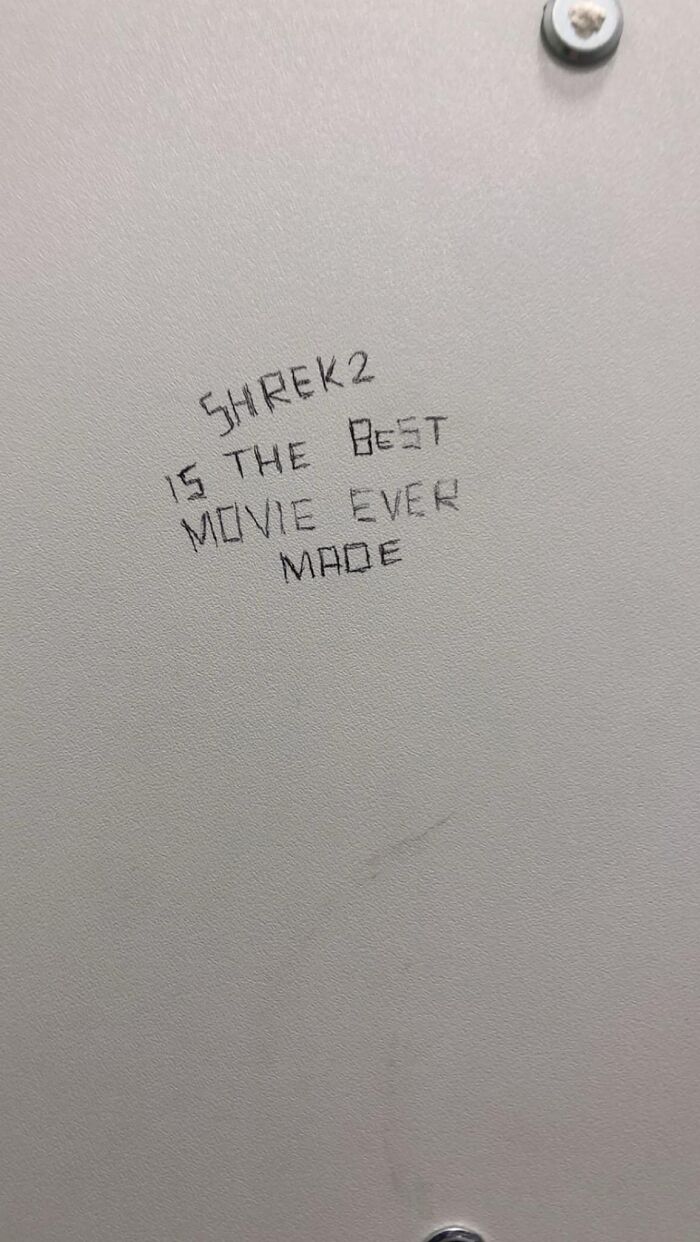 SHREK 2
IS THE BEST
MOVIE EVER
MADE